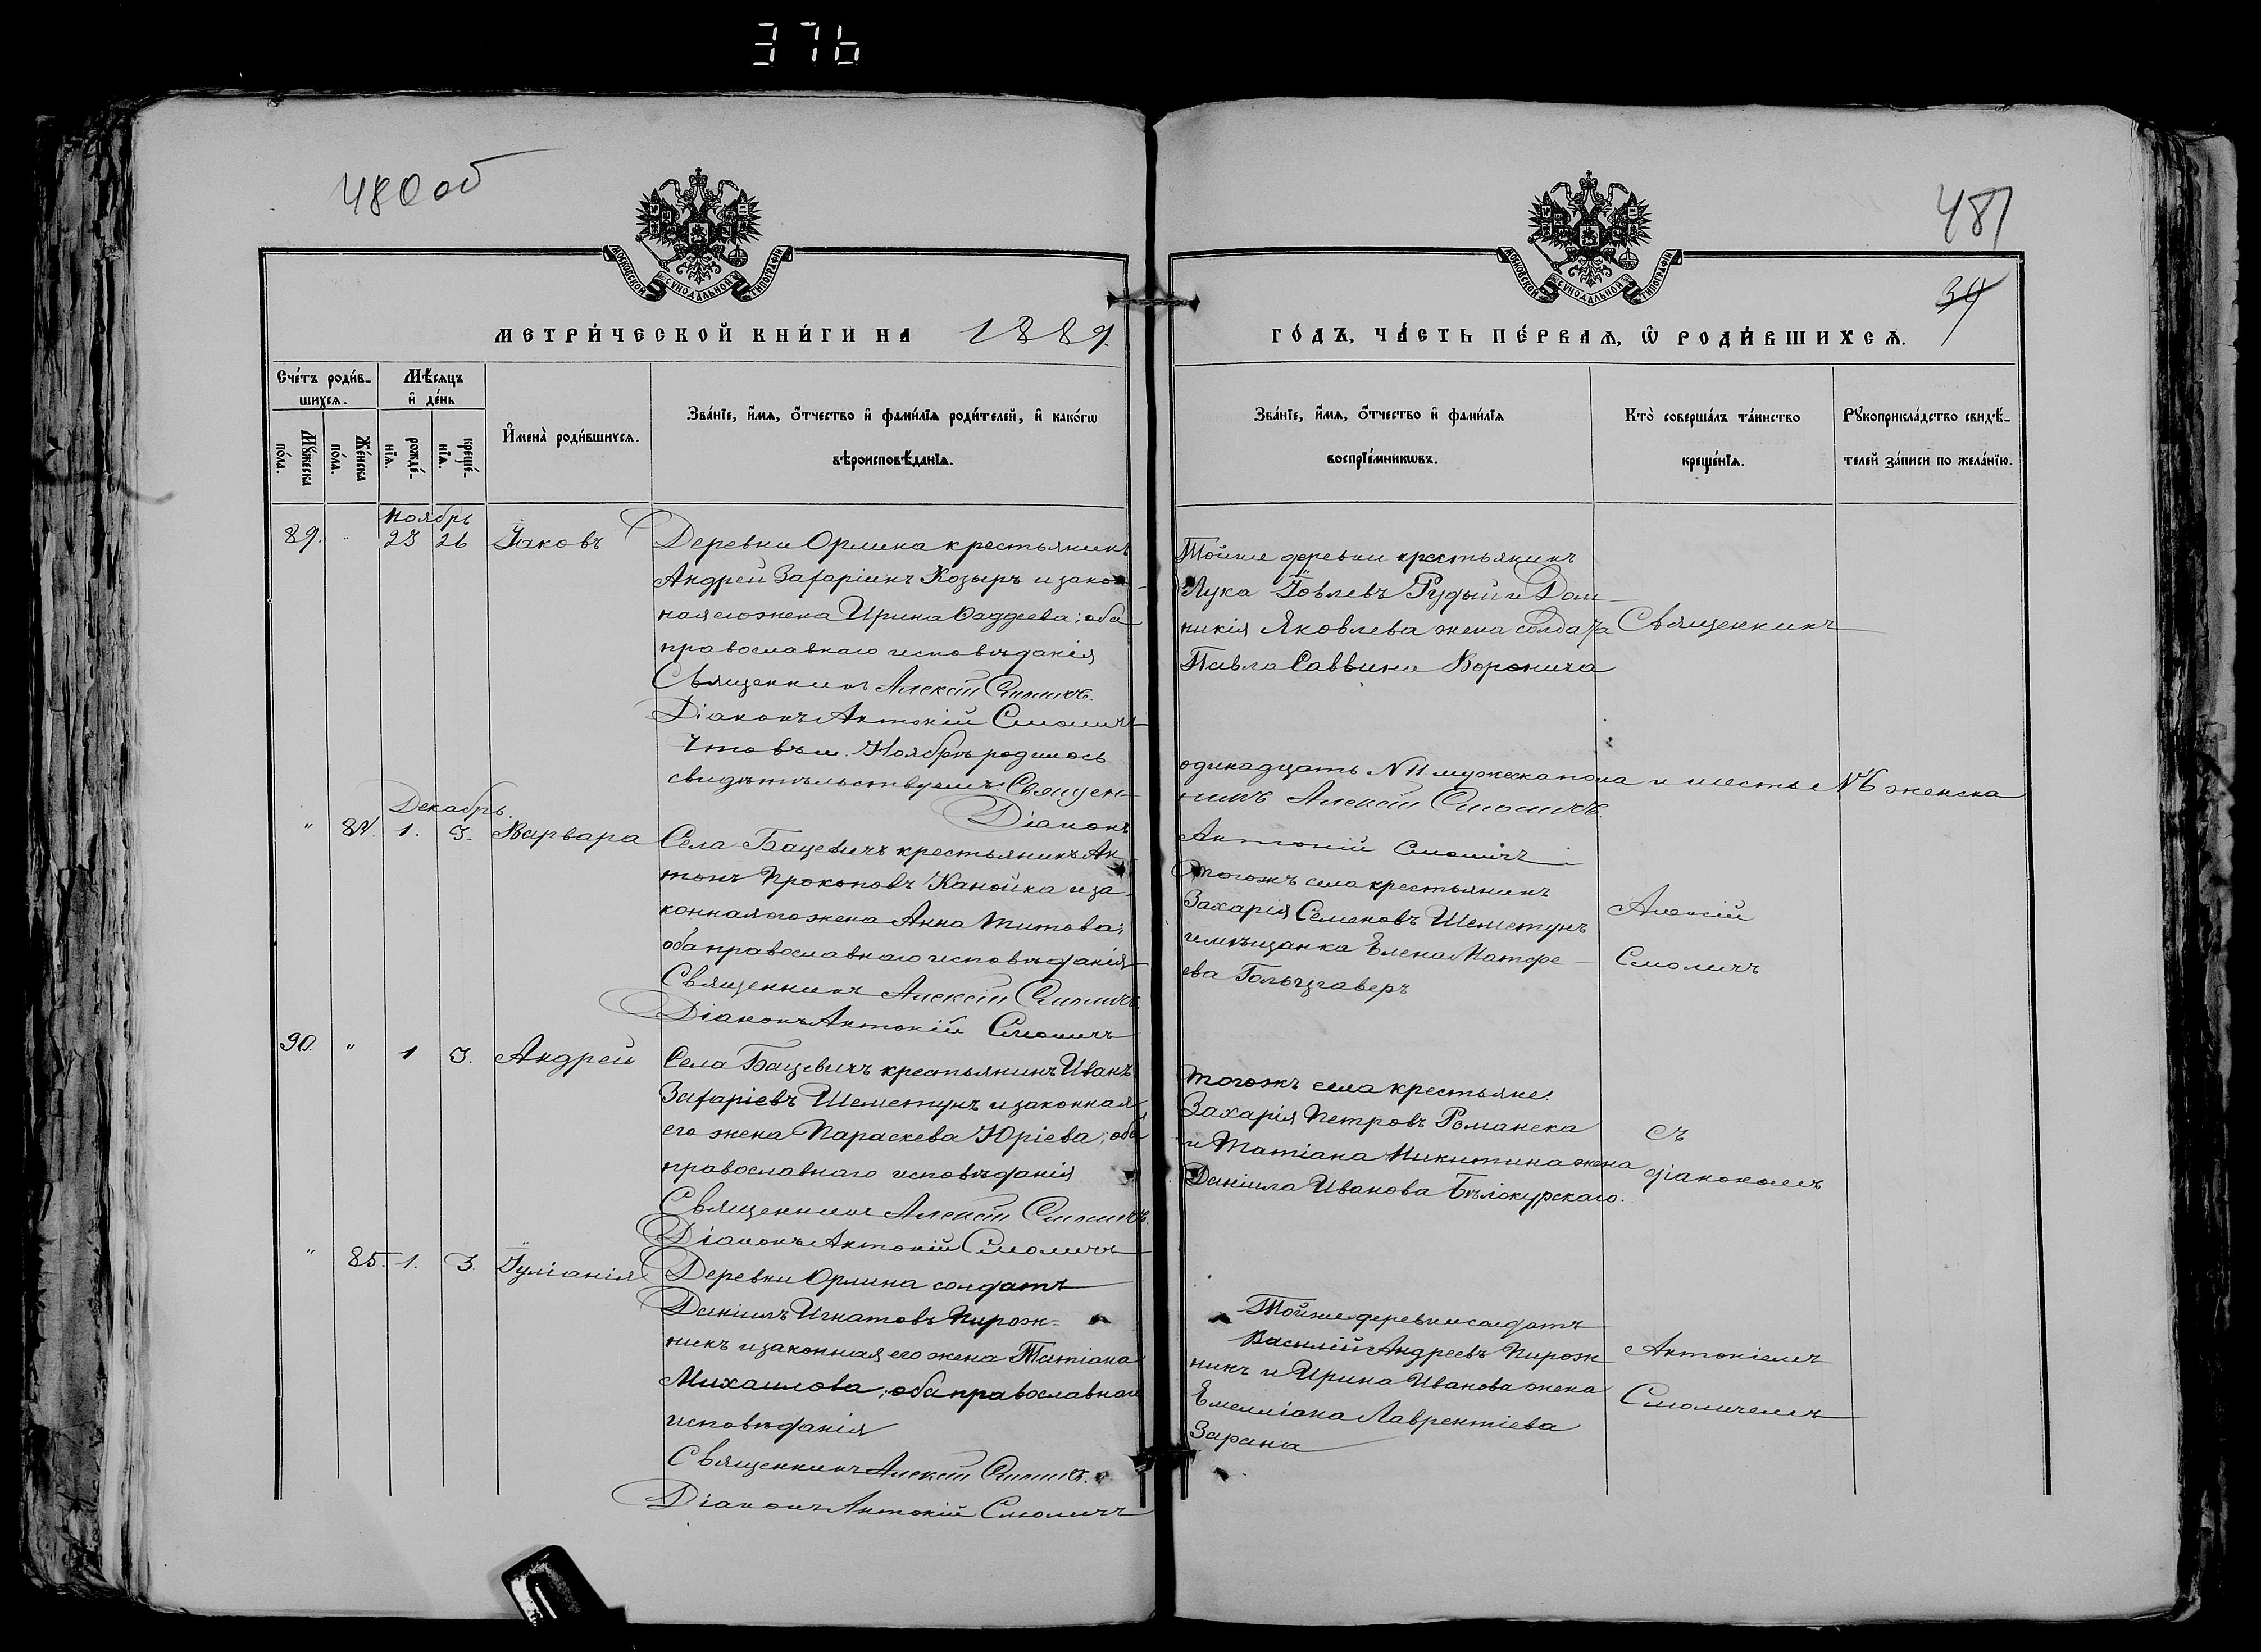 376
480 об
481
34
МОСКОВСКОЙ СУНОДАЛЬНОЙ ТИПОГРАФІИ
МОСКОВСКОЙ СУНОДАЛЬНОЙ ТИПОГРАФІИ
МЕТРИ́ЧЕСКОЙ КНИ́ГИ НА 1889.
ГО́ДЪ, ЧА́СТЬ ПЕ́РВАѦ, Ѡ҆ РОДИ́ВШИХСѦ.
Сче́тъ роди́вшихсѧ.
Мѣ́сѧцъ и҆ де́нь
Мꙋ́жеска по́ла.
Же́нска по́ла.
рожде́нїѧ.
креще́нїѧ.
И҆мена̀ роди́вшихсѧ.
Зва́нїе, и҆́мѧ, ѻ҆́тчество и҆ фами́лїѧ роди́телей, и҆ како́гѡ
вѣроисповѣ́данїѧ.
Зва́нїе, и҆́мѧ, ѻ҆́тчество и҆ фами́лїѧ
воспрїе́мникѡвъ.
Кто̀ соверша́лъ та́инство
креще́нїѧ.
Рꙋкоприкла́дство свидѣ́-
телей за́писи по жела́нїю.
Ноябрь
89. 23 26 Іаковъ
Деревни Орлина крестьянинъ
Андрей Захаріинъ Козыръ и закон-
ная его жена Ирина Фаддеева; оба
православнаго исповѣданія
Священникъ Алексій Смоличъ.
Діаконъ Антоній Смоличъ
Тойже деревни крестьянинъ
Лука Іовлевъ Рудый и Дом-
никія Яковлева жена солдата
Павла Саввина Воронича
Священникъ
Что въ м. Ноябрѣ родилось
одинадцать N 11 мужеска пола и шесть N 6 женска
свидѣтельствуемъ: Священ-
никъ Алексій Смоличъ.
Діаконъ
Антоній Смоличъ
Декабрь.
" 84. 1. 3. Варвара
Села Бацевичъ крестьянинъ Ан-
тонъ Прокоповъ Канойка и за-
конная его жена Анна Титова;
оба православнаго исповѣданія
Священникъ Алексій Смоличъ
Діаконъ Антоній Смоличъ
Тогожъ села крестьянинъ
Захарія Семеновъ Шеметунъ
и мѣщанка Елена Матфе-
ева
Алексій
Смоличъ
90. " 1 3. Андрей
Села Бацевичъ крестьянинъ Иванъ
Захаріевъ Шеметунъ и законная
его жена Параскева Юріева; оба
православнаго исповѣданія
Священникъ Алексій Смоличъ.
Діаконъ Антоній Смоличъ
Тогожъ села крестьяне:
Захарія Петровъ Романека
и Татіана Никитина жена
Даніила Иванова Бѣлокурскаго.
съ
діакономъ
" 85. 1. 3. Іуліанія
Деревни Орлина солдатъ
Даніилъ Игнатовъ Пирож=
никъ и законная его жена Татіана
Михаилова; оба православнаго
исповѣданія
Священникъ Алексій Смоличъ.
Діаконъ Антоній Смоличъ
Тойже деревни солдатъ
Василій Андреевъ Пирож-
никъ и Ирина Иванова жена
Емелліана Лаврентіева
Зарана
Антоніемъ
Смоличемъ